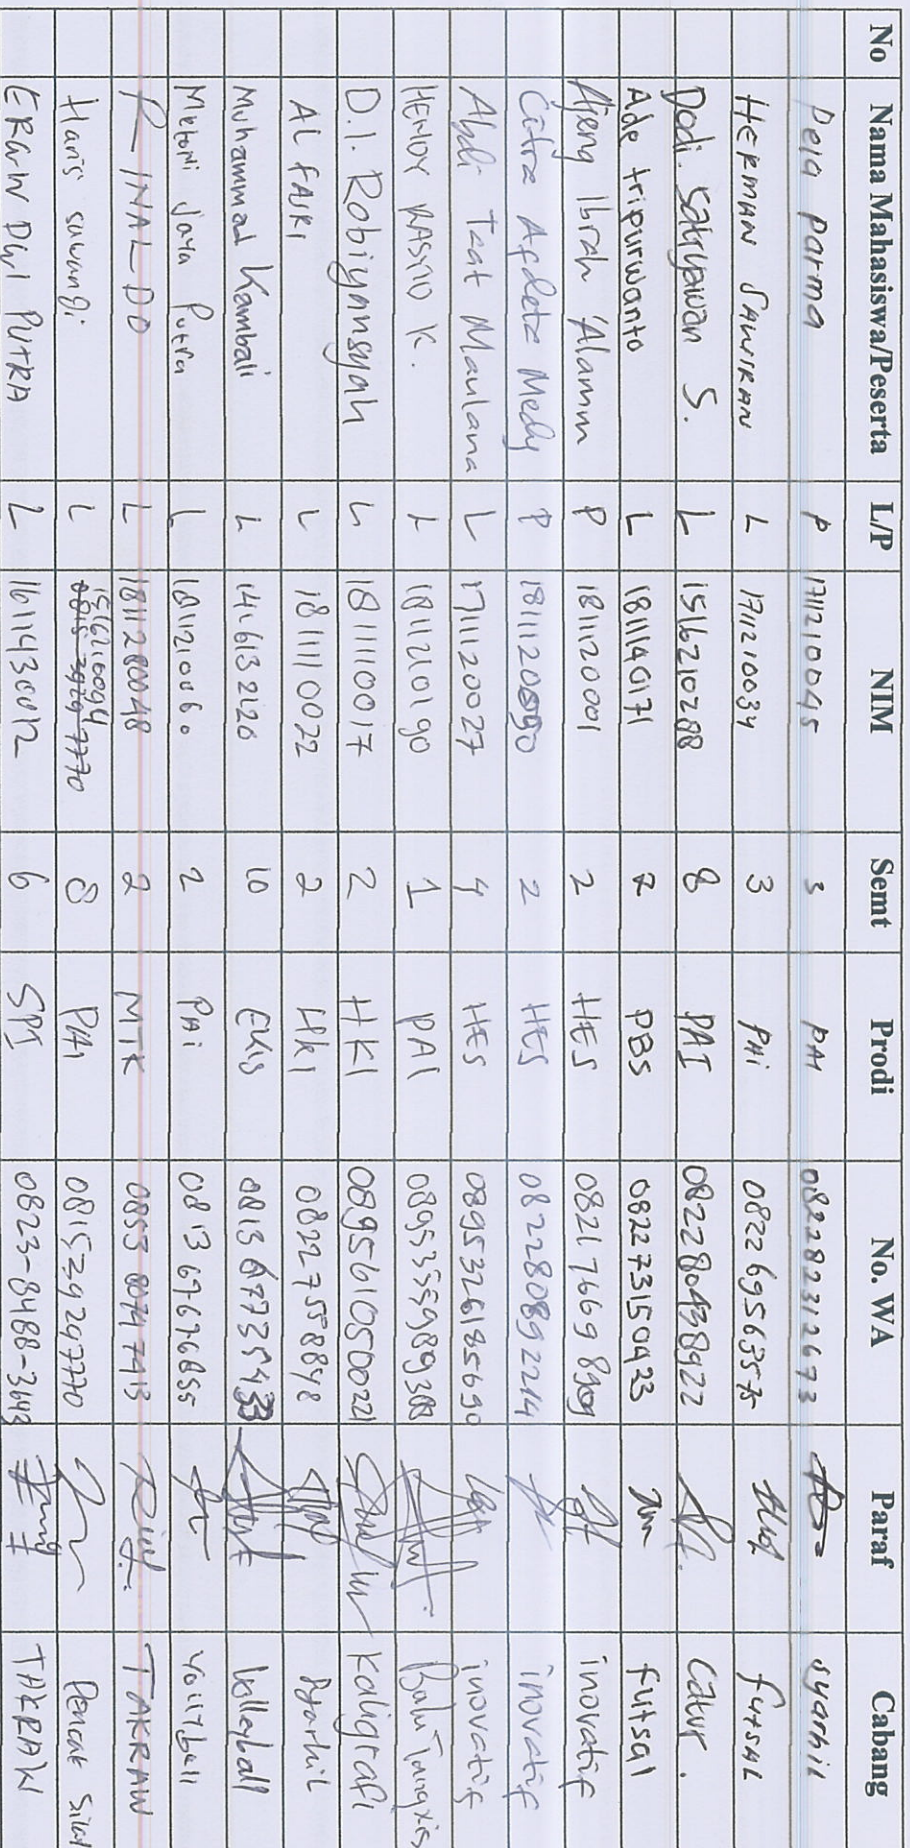 No Nama Mahasiswa/Peserta L/P NIM Semt Prodi No. WA Paraf Cabang
Dela parma P 1711210045 3 PAI 082282312673 syarhil
HERMAN SAWIRAN L 1711210034 3 PAi 082269563575 futSAL
Dodi. Satryawan S. L 1516210288 8 PAI 082280438922 Catur.
Ade tripurwanto L 1811140171 2 PBS 082273150423 futsal
Ajeng Ibrah 'Alamm P 1811120001 2 HES inovatif
Citra Afdeta Medy P 2 HES 082280892214 inovatif
Abdi Taat Maulana L 1711120027 4 HES 0895326185690 inovatif
HENDY RASTIO K. L 1811210190 1 PAI Bulu Tangkis
D.I. Robiyansyah L 1811110017 2 HKI 0895610500021 Kaligrafi
AL FAJRI L 1811110022 2 HkI 082275588848 Syarhil
Muhammad Kambali L 1416132126 10 EKis Volleyball
Metori Jaya Putra L 1811210060 2 PAi 081369676855 Vollyball
RINALDO L 1811280048 2 MTK 085380747413 TAKRAW
Haris suwangi L 1516210094 8 PAI 081529297770 Pencak Silat
ERAWN DWI PUTRA L 1611430012 6 SPI 0823-8488-3643 TAKRAW